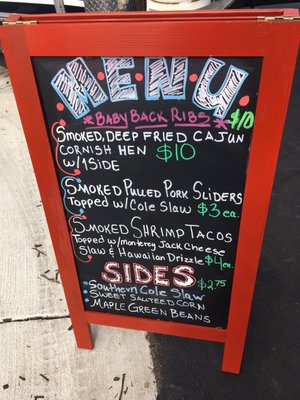 MENU
*BABY BACK RIBS* $10
SMOKED, DEEP FRIED CAJUN
CORNISH HEN $10
W/1 SIDE
SMOKED PULLED PORK SLIDERS
TOPPED W/COLE SLAW $3 ea.
SMOKED SHRIMP TACOS
TOPPED W/MONTEREY JACK CHEESE
SLAW & HAWAIIAN DRIZZLE $4 ea.
SIDES
SOUTHERN COLE SLAW $2.75
SWEET SAUTEED CORN
MAPLE GREEN BEANS